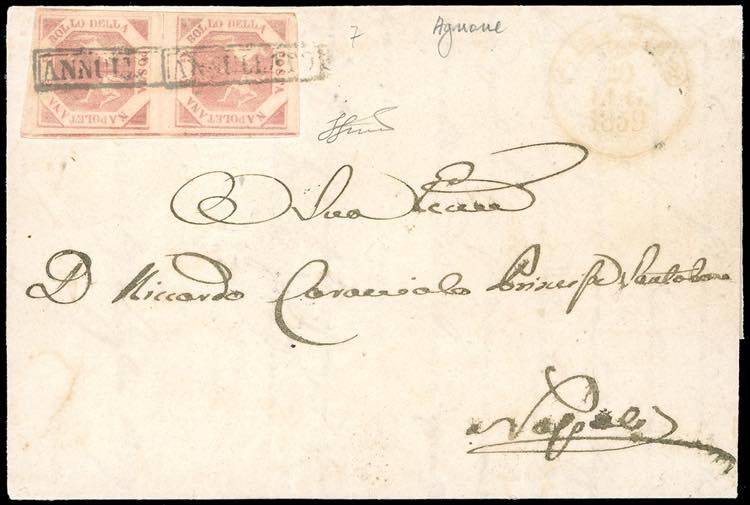 BOLLO DELLA POSTA NAPOLETANA
BOLLO DELLA POSTA NAPOLETANA
ANNULL ANNULLATO
7 Agnone
1859
Sua Eccza
D Riccardo Caracciolo Principe
Napoli